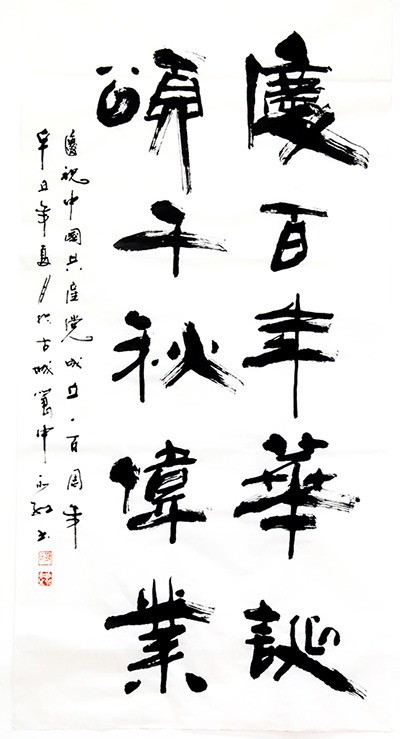 慶百年華誕
頌千秋偉業
慶祝中國共産党成立一百周年
辛丑年夏月於古城